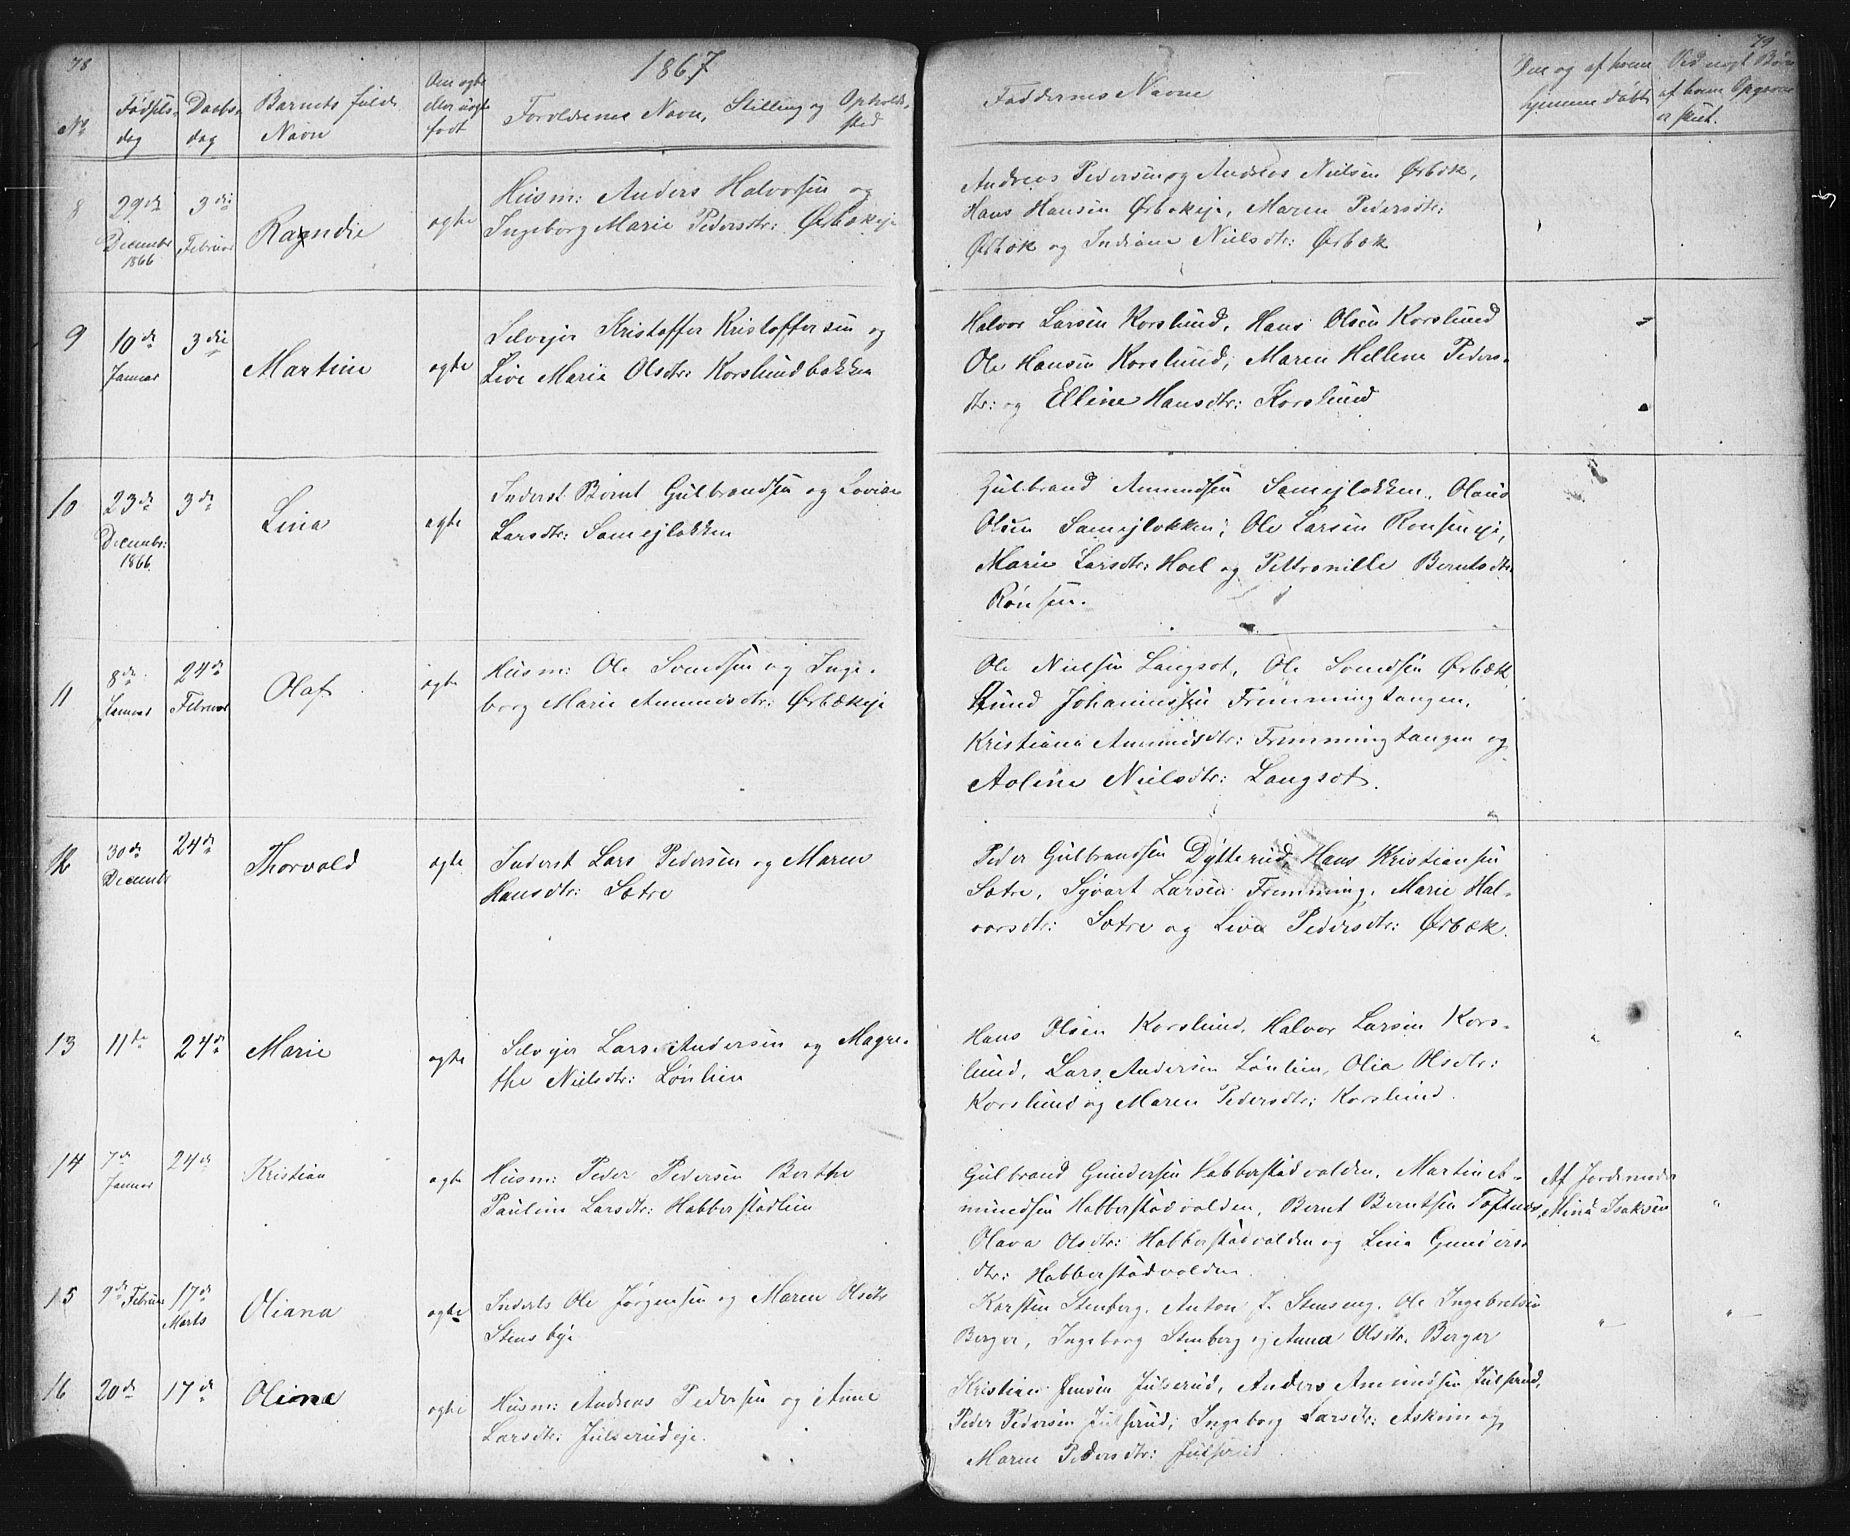 78
1867
79
No
Fødsels-
dag
Daabs-
dag
Barnets fulde
Navn
Om ægte
eller uægte
født
Forældrenes Navn, Stilling og Opholds-
sted
Faddernes Navne
Om og af hvem
hjemmedøbt
Ved uægt. Børn
af hvem Opgaven
er skeet.
8
29de
December
1866
3die
Februar
Ragndie
ægte
Husm: Anders Halvorsen og
Ingeborg Marie Pedersdtr: Ørbækeje
Andreas Pedersen og Andreas Nielsen Ørbæk,
Hans Hansen Ørbækeje, Maren Pedersdtr:
Ørbæk og Indiane Nielsdtr: Ørbæk
9
10de
Januar
3die
Martine
ægte
Selvejer Kristoffer Kristoffersen og
Live Marie Olsdtr: Korslundbakken
Halvor Larsen Korslund, Hans Olsen Korslund
Ole Hansen Korslund, Maren Hellene Peders-
dtr: og Elline Hansdtr: Korslund
10
23de
December:
1866
3de
Lina
ægte
Inderst Bernt Gulbrandsen og Lovise
Larsdtr: Samejløkken
Gulbrand Amundsen Samejløkken, Olaus
Olsen Samejløkken, Ole Larsen Rønseneje,
Marie Larsdtr: Hoel og Pettronille Berntsdtr
Rønsen.
11
8de
Januar
24de
Februar
Olaf
ægte
Husm: Ole Svendsen og Inge-
borg Marie Amundsdtr: Ørbækeje
Ole Nielsen Langset, Ole Svendsen Ørbæk
Gund Johannessen Fremmingtangen,
Kristiane Amundsdtr: Fremmingtangen og
Aoline Nielsdtr: Langset.
12
30de
December
24de
Thorvald
ægte
Inderst Lars Pedersen og Maren
Hansdtr: Sætre
Peder Gulbrandsen Dytterud, Hans Kristiansen
Sætre, Syvart Larsen Fremming, Marie Hal-
vorsdtr: Sætre og Live Pedersdtr: Ørbæk.
13
11te
24de
Marie
ægte
Selvejer Lars Andersen og Magre-
the Nielsdtr: Lønlien
Hans Olsen Korslund, Halvor Larsen Kors-
lund, Lars Andersen Lønlien, Olia Olsdtr:
Korslund og Maren Pedersdtr: Korslund.
"
"
14
7de
Januar
24de
Kristian
ægte
Husm: Peder Pedersen Berthe
Pauline Larsdtr: Habberstadlien
Gulbrand Gundersen Habberstadvolden, Martin A-
mundsen Habberstadvolden, Bernt Berntsen Toftnæs,
Olava Olsdtr: Habberstadvolden og Lina Gunders-
dtr: Habberstadvolden.
Af Jordemoder
Mina Isaksen
"
15
9de Februar
17de
Marts
Oliana
ægte
Inderts Ole Jørgensen og Maren Olsdtr
Stensbye
Karsten Stenberg, Anton J. Stenseng, Ole Ingebretsen
Berger, Ingeborg Stenberg og Anna Olsdtr. Berger
"
"
16
20de
17de
Oline
ægte
Husm: Andreas Pedersen og Anne
Larsdtr: Julserudeje.
Kristian Jensen Julserud, Anders Amundsen Julserud,
Peder Pedersen Julserud, Ingeborg Larsdtr: Askim og
Maren Pedersdtr: Julserud.